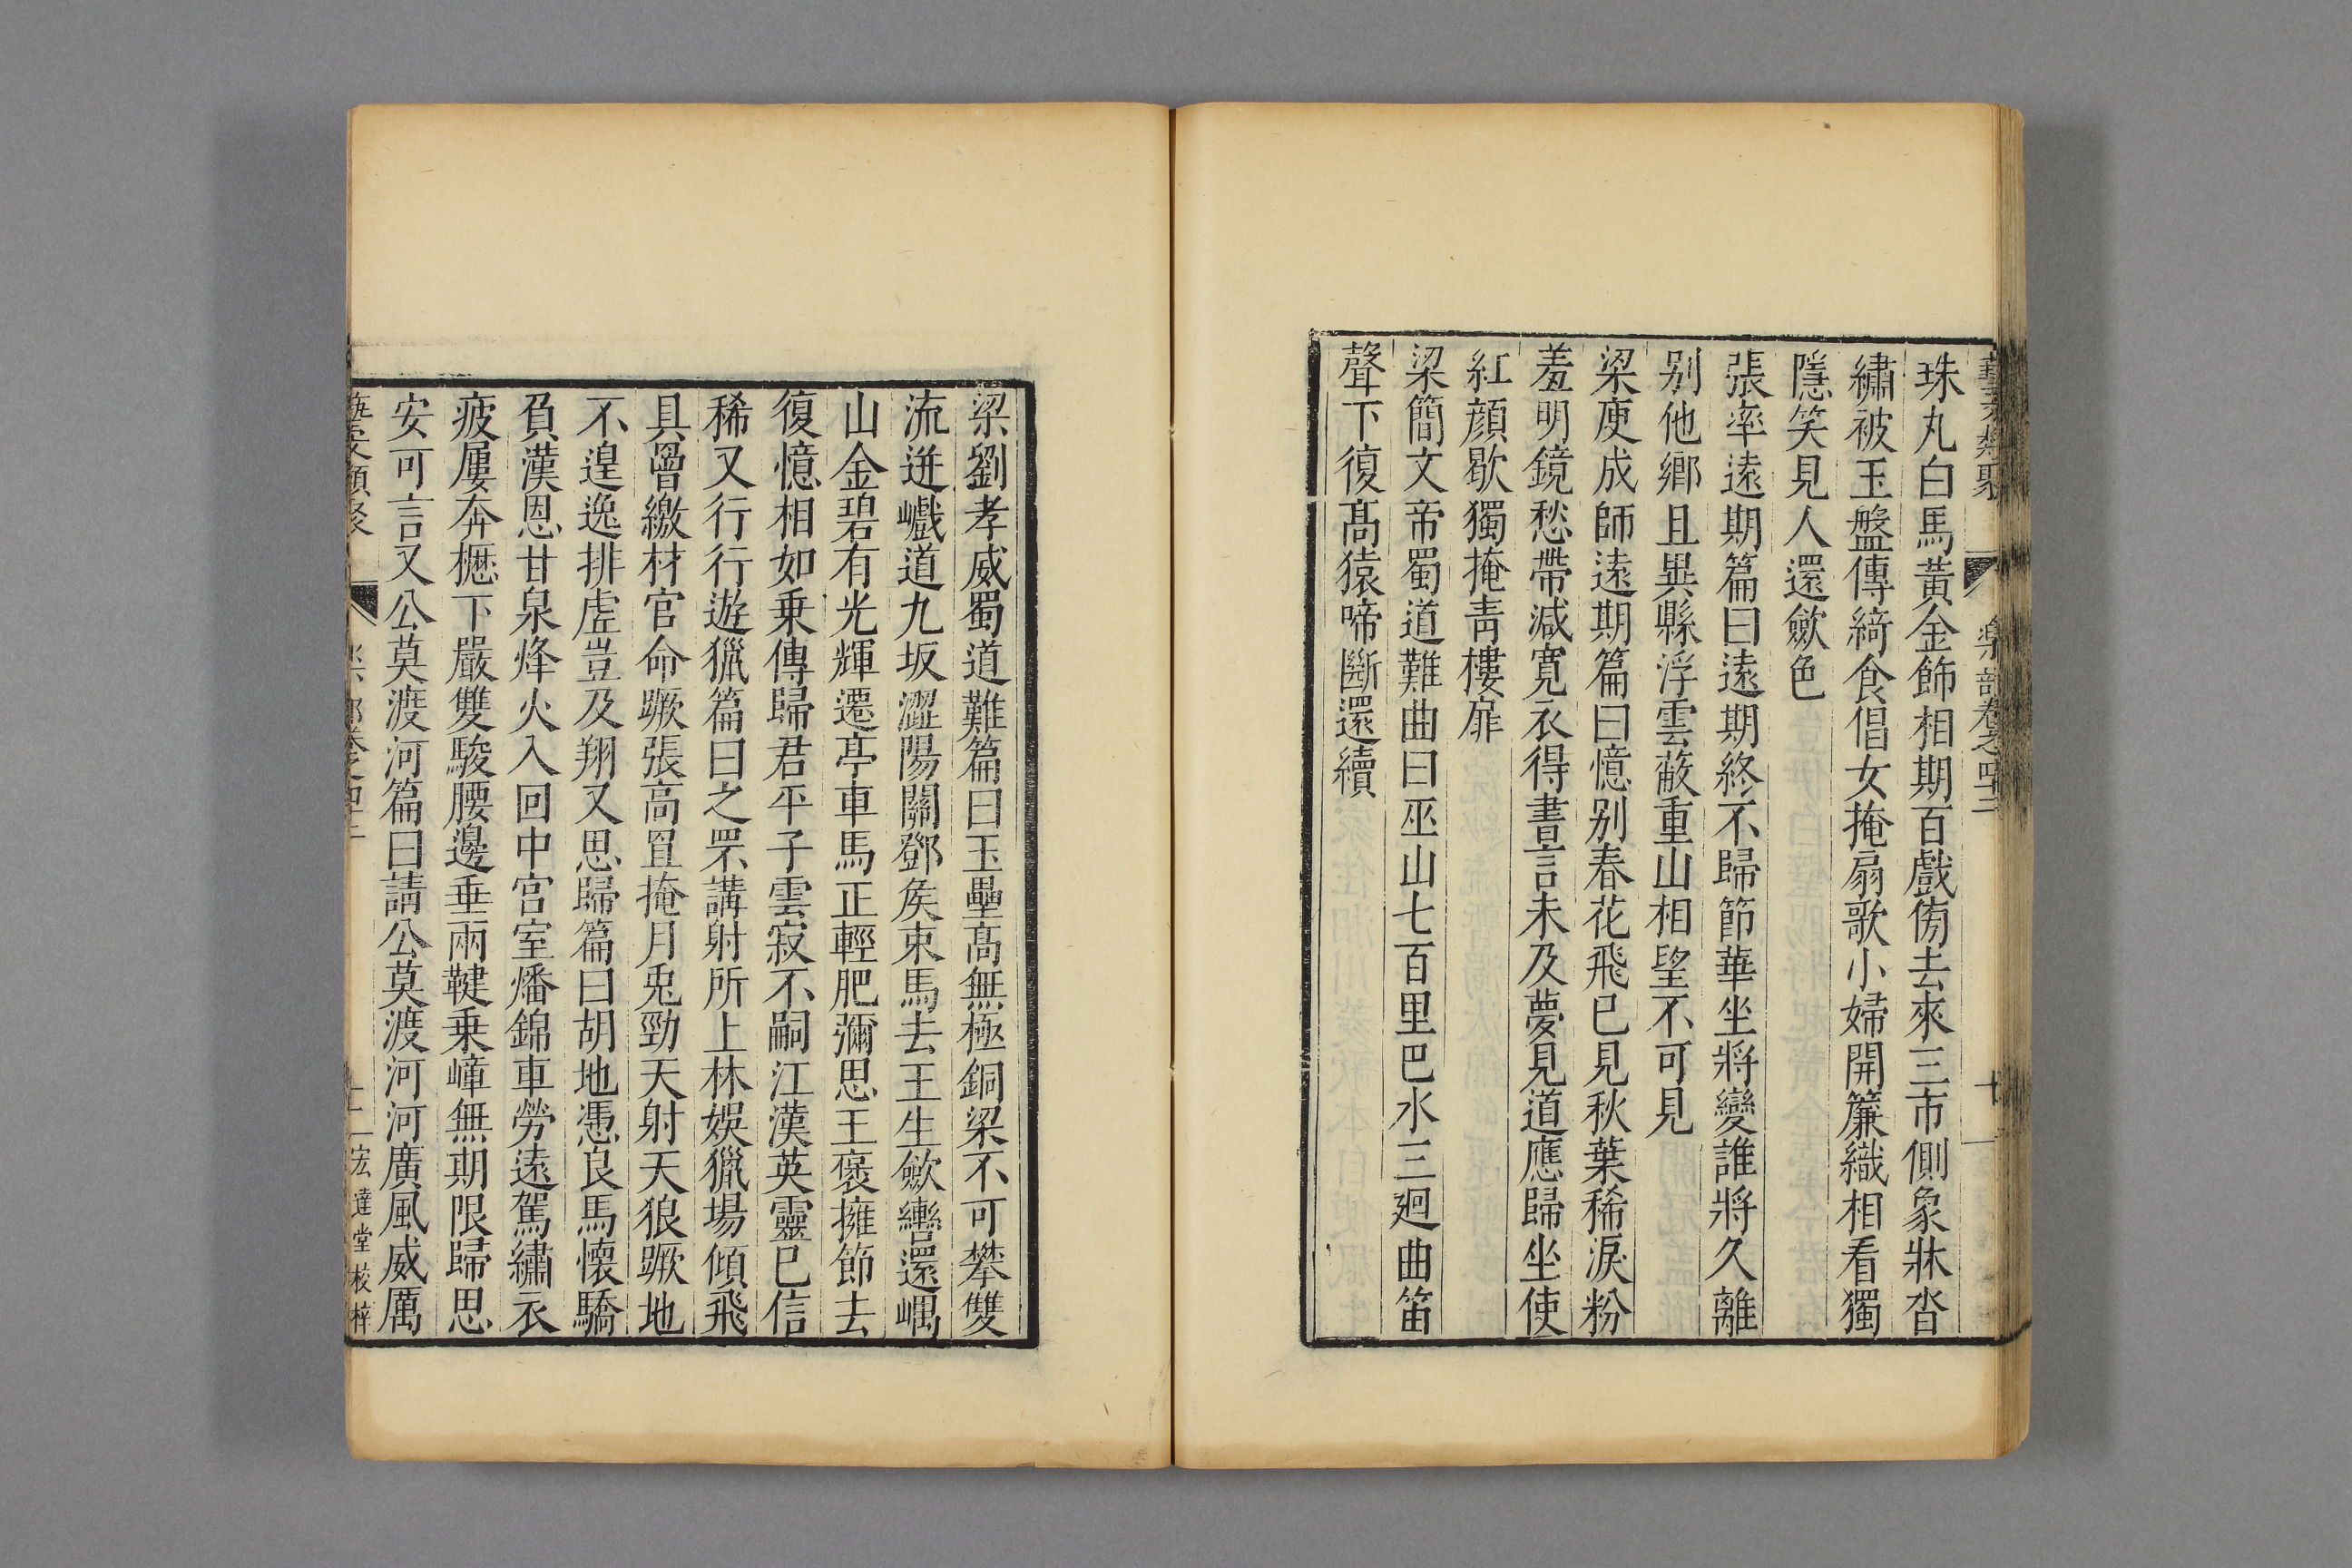 藝文類聚 樂部卷之四十二 十
珠丸白馬黃金飾相期百戲傍去來三市側象牀沓
繡被玉盤傳綺食倡女掩扇歌小婦開簾織相看獨
隱笑見人還歛色
張率遠期篇曰遠期終不歸節華坐將變誰將久離
别他鄉且異縣浮雲蔽重山相望不可見
梁庾成師遠期篇曰憶别春花飛已見秋葉稀淚粉
羞明鏡愁帶減寛衣得書言未及夢見道應歸坐使
紅顔歇獨掩靑樓扉
梁簡文帝蜀道難曲曰巫山七百里巴水三廻曲笛
聲下復髙猿啼斷還續
梁劉孝威蜀道難篇曰玉壘髙無極銅梁不可攀雙
流迸巇道九坂澀陽關鄧矦束馬去王生歛轡還嵎
山金碧有光輝遷亭車馬正輕肥彌思王襃擁節去
復憶相如乗傳歸君平子雲寂不嗣江漢英靈已信
稀又行行遊獵篇曰之罘講射所上林娛獵場傾飛
具罾繳材官命蹶張高罝掩月兎勁天射天狼蹶地
不遑逸排虗豈及翔又思歸篇曰胡地憑良馬懷驕
負漢恩甘泉烽火入回中宮室燔錦車勞遠駕繡衣
疲屢奔櫪下嚴雙駿腰邊垂兩鞬乗嶂無期限歸思
安可言又公莫渡河篇曰請公莫渡河河廣風威厲
藝文類聚 樂部卷之四十二 十一 宏達堂校梓